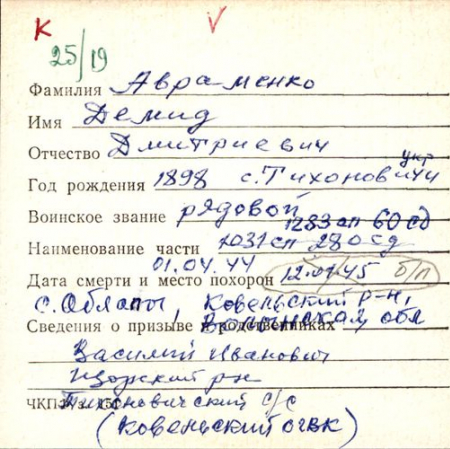 К V
25/19
Фамилия Авраменко
Имя Демид
Отчество Дмитриевич
укр
Год рождения 1898 с. Тихоновичи
Воинское звание рядовой
1283 сп 60 сд
Наименование части 1031 сп 280 сд
01.04.44
Дата смерти и место похорон 12.01.45 б/п
с. Облапы, Ковельский р-н,
Волынская обл
Сведения о призыве и родственниках
Василий Иванович
р-н
Тихоновичский с/с
ЧКПП
(Ковельский ОГВК)